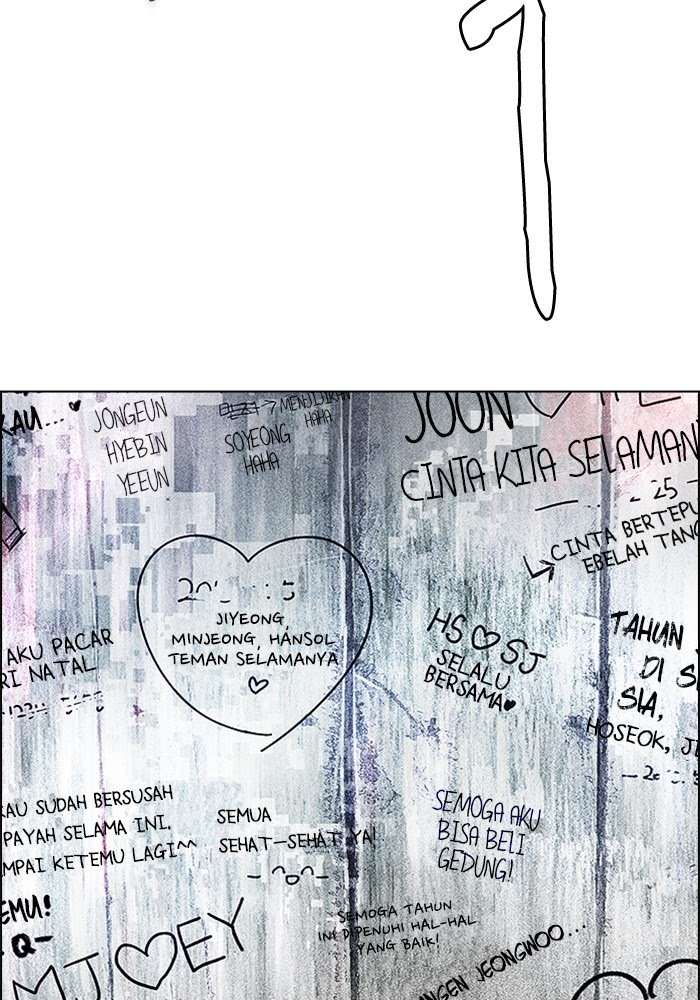 1
KAU...♥
JONGEUN
HYEBIN
YEEUN
HAHA
SOYEONG
HAHA
JOON
CINTA KITA SELAMAN
- 25 -
CINTA BERTEPU
EBELAH TANG
JIYEONG,
MINJEONG, HANSOL
TEMAN SELAMANYA
♡
HS♡SJ
SELALU
BERSAMA♥
TAHUN
DI S
SIA,
HOSEOK, JI
AKU PACAR
RI NATAL
KAU SUDAH BERSUSAH
PAYAH SELAMA INI.
MPAI KETEMU LAGI^^
SEMUA
SEHAT-SEHAT YA!
SEMOGA AKU
BISA BELI
GEDUNG!
EMU!
Q-
MJ♡EY
SEMOGA TAHUN
INI DIPENUHI HAL-HAL
YANG BAIK!
NGEN JEONGWOO...